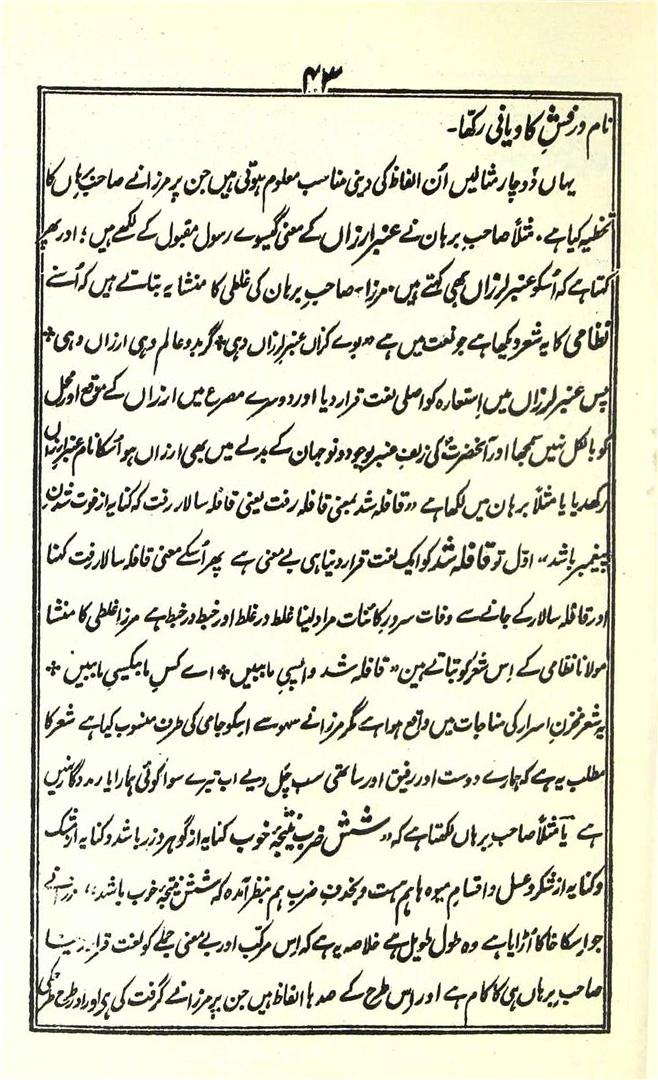 ۴۳
نام درفش کاویانی رکھا۔
یہاں دو چار مثالیں اُن الفاظ کی دینی مناسب معلوم ہوتی ہیں جن پر مرزا نے صاحب برہاں کا
تخطیہ کیا ہے۔ مثلاً صاحب برہان نے عنبر ارزاں کے معنی گیسوے رسول مقبول کے لکھے ہیں؛ اور پھر
کہتا ہے کہ اُسکو عنبر لرزاں بھی کہتے ہیں۔ مرزا، صاحبِ برہان کی غلطی کا منشا یہ بتاتے ہیں کہ اُسنے
نظامی کا یہ شعر دیکھا ہے جو نعت میں ہے "بوے کزاں عنبر لرزاں دہی * گر بدو عالم دہی ارزاں دہی *
پس عنبر لرزاں میں اِستعارہ کو اصلی لغت قرار دیا اور دوسرے مصرع میں ارزاں کے موقع اور محل
کو بالکل نہیں سمجھا اور آنحضرتؐ کی زلفِ عنبر بو جو دونو جہان کے بدلے میں بھی ارزاں ہو اُسکا نام عنبر ارزاں
رکھدیا یا مثلاً برہان میں لکھا ہے "قافلہ شد بمعنی قافلہ رفت یعنی قافلہ سالار رفت کہ کنایہ از فوت شدنِ
پیغمبر باشد" اوّل تو قافلہ شد کو ایک لغت قرار دینا ہی بے معنی ہے پھر اُسکے معنی قافلہ سالار رفت کہنا
اور قافلہ سالار کے جانے سے وفات سرورِ کائنات مراد لینا غلط در غلط اور خبط در خبط ہے مرزا غلطی کا منشا
مولانا نظامی کے اِس شعر کو بتاتے ہین "قافلہ شد واپسیِ ما ببیں * اے کسِ ما بیکسیِ ما ببیں *
یہ شعر مخزنِ اسرار کی مناجات میں واقع ہوا ہے مگر مرزا نے سہو سے اسکو جامی کی طرف منسوب کیا ہے شعر کا
مطلب یہ ہے کہ ہمارے دوست اور رفیق اور ساتھی سب چل دیے اب تیرے سوا کوئی ہمارا یار مددگار نہیں
ہے یا مثلاً صاحبِ برہاں لکھتا ہے کہ "شش ضربِ نتیجۂ خوب کنایہ از گوہر و زر باشد و کنایہ از مشک
و کنایہ از شکر و عسل و اقسامِ میوہ ہا ہم ہست و بحذفِ ضرب ہم نظر آمدہ کہ شش نتیجۂ خوب باشد" مرزا نے
جو اِسکا خاکا اُڑایا ہے وہ طول طویل ہے خلاصہ یہ ہے کہ اِس مرکب اور بے معنی جملے کو لغت قرار دینا
صاحبِ برہاں ہی کا کام ہے اور اِس طرح کے صدہا الفاظ ہیں جن پر مرزا نے گرفت کی ہے اور اور طرح طرح کی